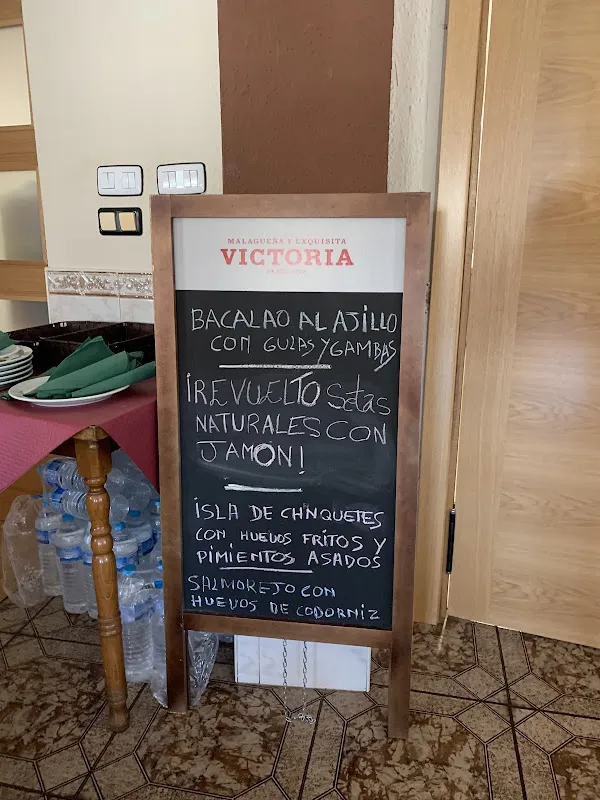 MALAGUEÑA Y EXQUISITA
VICTORIA
BACALAO AL AJILLO
CON GULAS Y GAMBAS
¡REVUELTO Setas
NATURALES CON
JAMON!
ISLA DE CHNQUETES
CON HUEVOS FRITOS Y
PIMIENTOS ASADOS
SALMOREJO CON
HUEVOS DE CODORNIZ